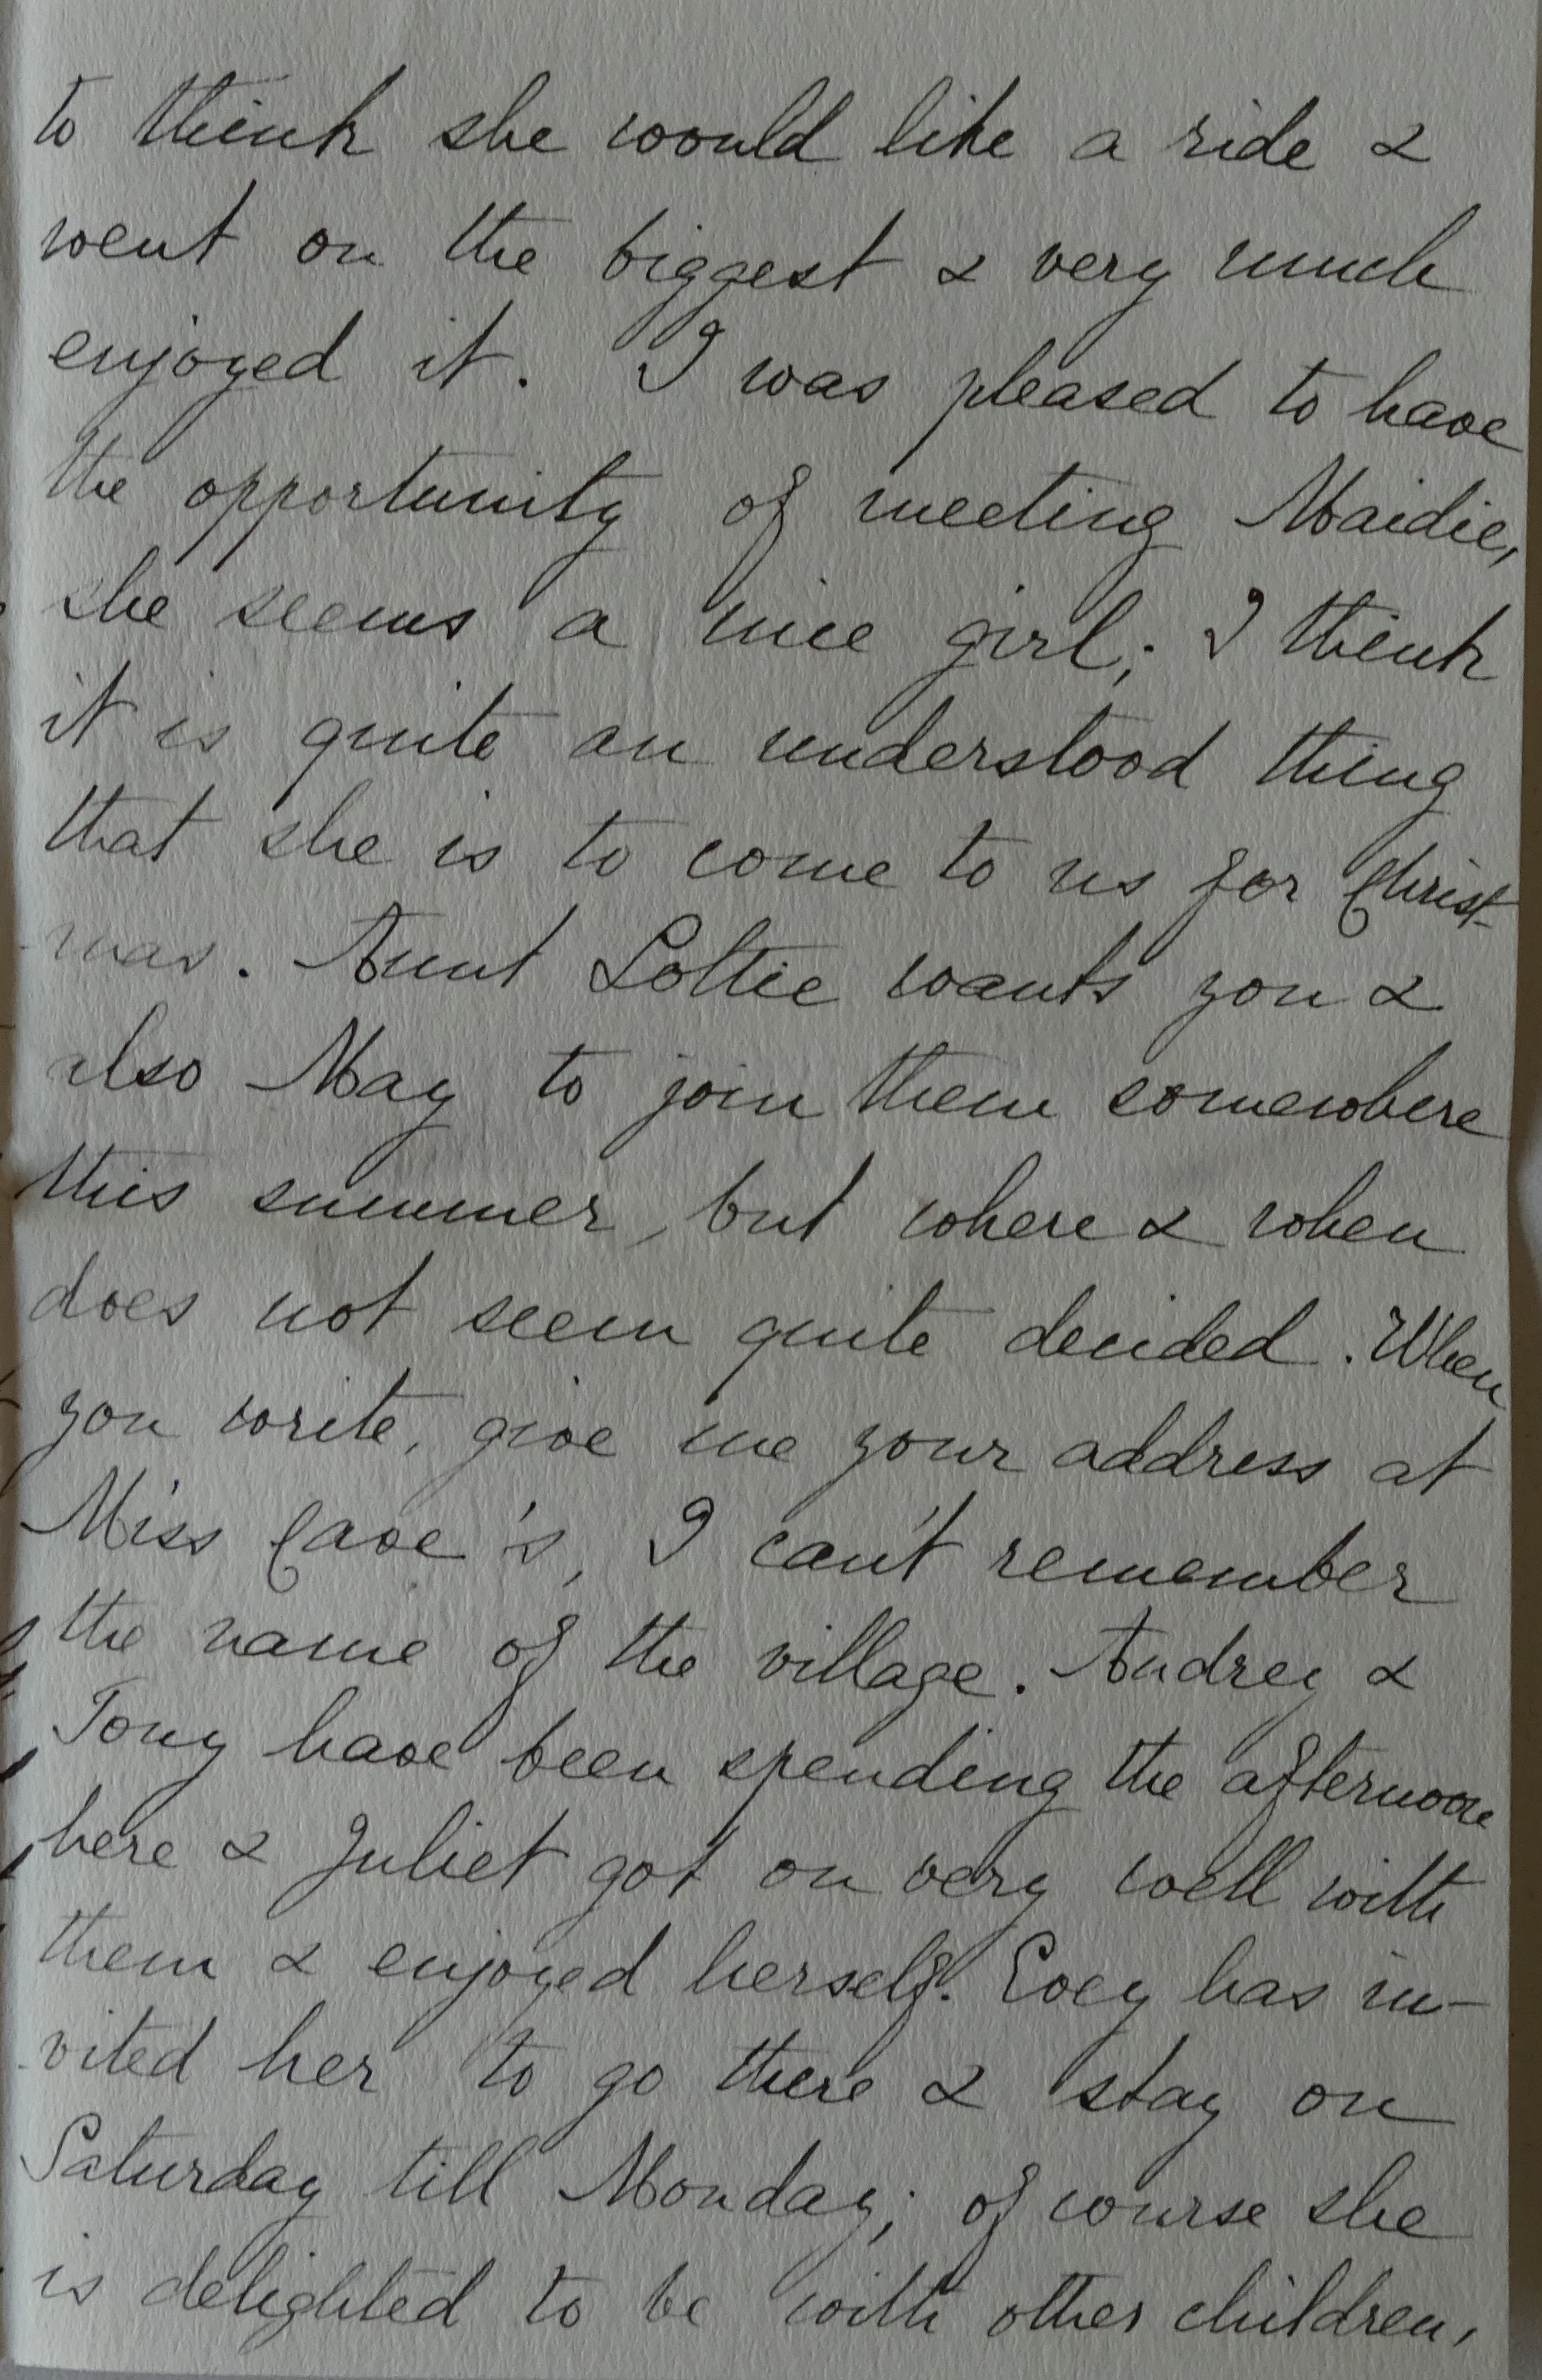 to think she would like a ride &
went on the biggest & very much
enjoyed it. I was pleased to have
the opportunity of meeting Maidie,
she seems a nice girl; I think
it is quite an understood thing
that she is to come to us for Christ-
mas. Aunt Lottie wants you &
also May to join them somewhere
this summer, but where & when
does not seem quite decided. When
you write, give me your address at
Miss Cave's, I can't remember
the name of the village. Audrey &
Tony have been spending the afternoon
here & Juliet got on very well with
them & enjoyed herself. Evey has in-
vited her to go there & stay on
Saturday till Monday; of course she
is delighted to be with other children,